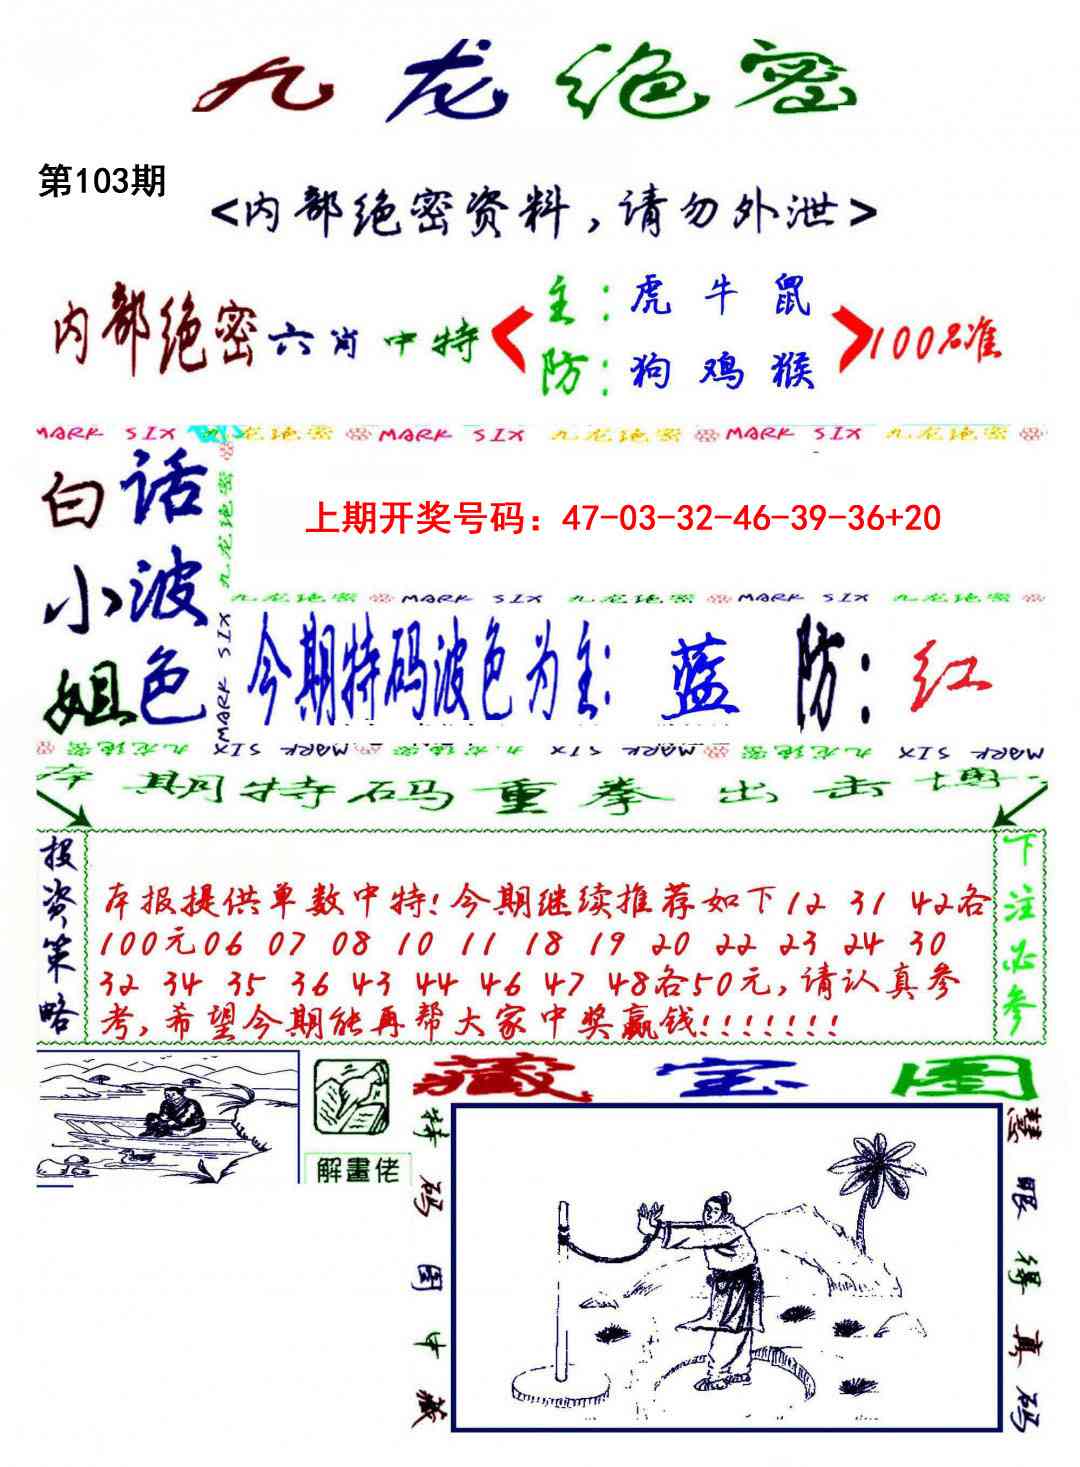 九龙绝密
第103期
<内部绝密资料,请勿外泄>
内部绝密六肖中特
主:虎 牛 鼠
防:狗 鸡 猴
100%准
MARK SIX 九龙绝密 MARK SIX 九龙绝密 MARK SIX 九龙绝密
白小姐
话波色
九龙绝密
MARK SIX
上期开奖号码：47-03-32-46-39-36+20
九龙绝密 MARK SIX 九龙绝密 MARK SIX 九龙绝密
今期特码波色为主: 蓝 防: 红
九龙绝密 MARK SIX 九龙绝密 MARK SIX 九龙绝密 MARK SIX
本期特码重拳出击博
投资策略
本报提供单数中特!今期继续推荐如下12 31 42各
100元06 07 08 10 11 18 19 20 22 23 24 30
32 34 35 36 43 44 46 47 48各50元,请认真参
考,希望今期能再帮大家中奖赢钱!!!!!!!
下注必参
解畫佬
藏宝图
特码图中藏
慧眼得真码